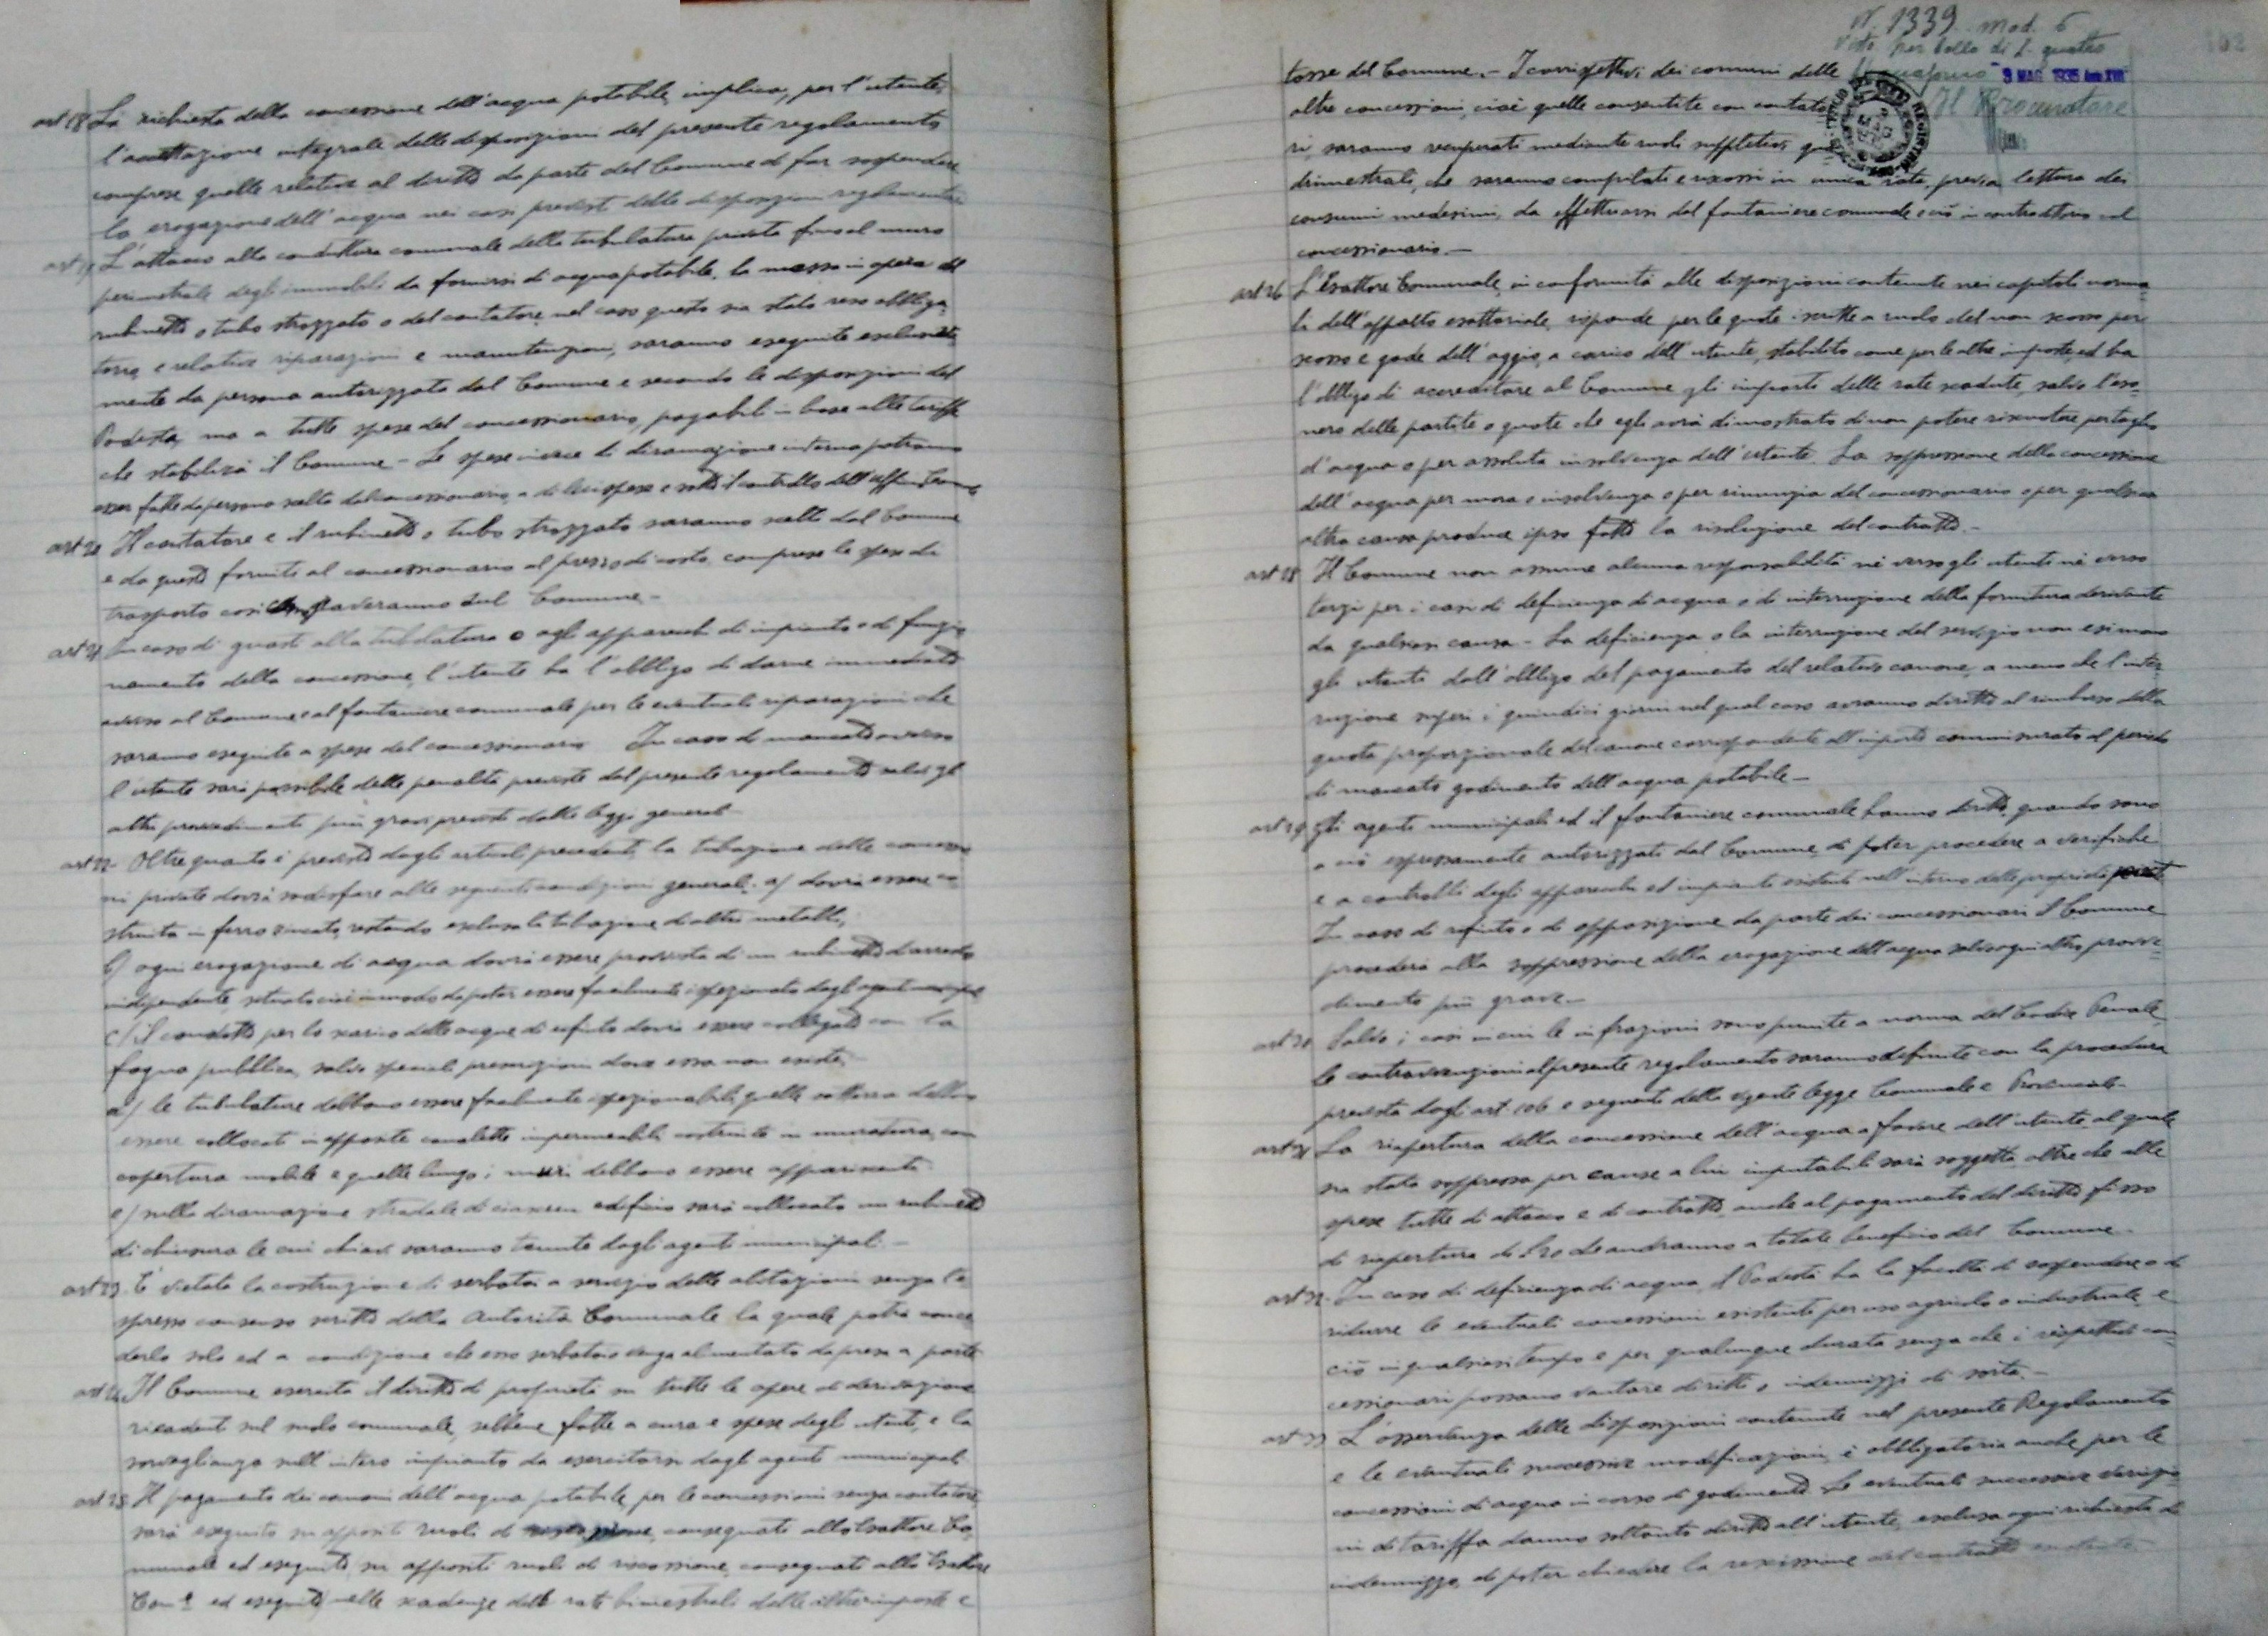 art 18 La richiesta della concessione dell'acqua potabile, implica, per l'utente,
l'accettazione integrale delle disposizioni del presente regolamento
comprese quelle relative al diritto da parte del Comune di far sospendere
la erogazione dell'acqua nei casi previsti dalle disposizioni regolamentari
art 19 L'attacco alla conduttura comunale della tubulatura privata fino al muro
perimetrale degli immobili da fornirsi di acqua potabile, la messa in opera del
rubinetto o tubo strozzato o del contatore nel caso questo sia stato reso obbliga-
torio, e relative riparazioni e manutenzioni, saranno eseguite esclusiva
mente da persona autorizzata dal Comune e secondo le disposizioni del
Podestà, ma a tutte spese del concessionario, pagabili in base alle tariffe
che stabilirà il Comune - Le spese invece di diramazione interna potranno
esser fatte da persona scelta dal concessionario, a di lui spese e sotto il controllo dell'uffici
art 20 Il contatore e il rubinetto o tubo strozzato saranno scelti dal Comune
e da questo forniti al concessionario al prezzo di costo comprese le spese di
trasporto così graveranno sul Comune -
art 21 In caso di guasti alla tubulatura o agli apparecchi di impianto o di funzio
namento della concessione, l'utente ha l'obbligo di darne immediato
avviso al Comune o al fontaniere comunale per le eventuali riparazioni che
saranno eseguite a spese del concessionario In caso di mancato avviso
l'utente sarà passibile delle penalità previste dal presente regolamento salvo gli
altri provvedimenti più gravi previsti dalle leggi generali
art 22 Oltre quanto è previsto dagli articoli precedenti, la tubazione delle concessio
ni private dovrà sodisfare alle seguenti condizioni generali: a/ dovrà essere co
struita in ferro zincato, restando esclusa la tubazione di altri metalli;
b/ ogni erogazione di acqua dovrà essere provvista di un rubinetto d'arresto
indipendente, situato così in modo da poter essere facilmente ispezionato dagli agenti
c/ il condotto per lo scarico delle acque di rifiuto dovrà essere collegato con la
fogna pubblica, salvo speciali prescrizioni dove essa non esiste;
d/ le tubulature debbono essere facilmente ispezionabili, quelle sotterra debbono
essere collocate in apposite canalette impermeabili costruite in muratura, con
copertura mobile e quelle lungo i muri debbono essere appariscenti
e/ nella diramazione stradale di ciascun edificio sarà collocato un rubinetto
di chiusura le cui chiavi saranno tenute dagli agenti municipali. -
art 23 È vietata la costruzione di serbatoi a servizio delle abitazioni senza l'e
spresso consenso scritto della Autorità Comunale la quale potrà conce
derlo solo ed a condizione che esso serbatoio venga alimentato da presa a parte
art 24 Il Comune esercita il diritto di proprietà su tutte le opere di derivazione
ricadenti sul suolo comunale, sebbene fatte a cura e spese degli utenti, e la
sorveglianza sull'intero impianto da esercitarsi dagli agenti municipali
art 25 Il pagamento dei canoni dell'acqua potabile, per le concessioni senza contatore,
sarà eseguito su appositi ruoli di consegnati allo Esattore Co-
munale ed eseguito su appositi ruoli di riscossione, consegnati allo Esattore
Com.e ed eseguito nelle scadenze delle rate bimestrali delle altre imposte e
N. 1339 mod. 6
Visto per bollo di L. quattro
3 MAG 1935 Anno XIII
Il Procuratore
tasse del Comune. - I corrispettivi dei consumi delle
altre concessioni, cioè quelle consentite con contato
ri, saranno recuperati mediante ruoli suppletivi
drimestrali, che saranno compilati e riscossi in unica rata, previa lettura dei
consumi medesimi, da effettuarsi dal fontaniere comunale e ciò in contraditorio col
concessionario. -
art 26 L'Esattore Comunale, in conformità alle disposizioni contenute nei capitoli norma-
li dell'appalto esattoriale, risponde per le quote iscritte a ruolo del non scosso per
scosso e gode dell'aggio, a carico dell'utente, stabilito come per le altre imposte, ed ha
l'obbligo di accreditare al Comune gli importi delle rate scadute, salvo l'eso-
nero delle partite o quote che egli avrà dimostrato di non potere riscuotere per taglio
d'acqua o per assoluta insolvenza dell'utente. La soppressione della concessione
dell'acqua per mora o insolvenza o per rinunzia del concessionario o per qualsiasi
altra causa produce ipso fatto la risoluzione del contratto. -
art 28 Il Comune non assume alcuna responsabilità nè verso gli utenti nè verso
terzi per i casi di deficienza di acqua o di interruzione della fornitura derivante
da qualsiasi causa - La deficienza o la interruzione del servizio non esimono
gli utenti dall'obbligo del pagamento del relativo canone, a meno che l'inter-
ruzione superi i quindici giorni nel qual caso avranno diritto al rimborso della
quota proporzionale del canone corrispondente all'importo commisurato al periodo
di mancato godimento dell'acqua potabile -
art 29 Gli agenti municipali ed il fontaniere comunale hanno diritto, quando sono
a ciò espressamente autorizzati dal Comune, di poter procedere a verifiche
e a controlli degli apparecchi ed impianti esistenti nell'interno delle proprietà private
In caso di rifiuto o di opposizione da parte dei concessionari il Comune
procederà alla soppressione della erogazione dell'acqua salvo ogni altro provve-
dimento più grave. -
art 30 Salvo i casi in cui le infrazioni sono punite a norma del Codice Penale,
le contravvenzioni al presente regolamento saranno definite con la procedura
prevista dagli art. 106 e seguenti della vigente legge Comunale e Provinciale -
art 31 La riapertura della concessione dell'acqua a favore dell'utente al quale
sia stata soppressa per cause a lui imputabili sarà soggetta oltre che alle
spese tutte di attacco e di contratto, anche al pagamento del diritto fisso
di riapertura di L. 20 che andranno a totale beneficio del Comune -
art 32 In caso di deficienza di acqua, il Podestà ha la facoltà di sospendere o di
ridurre le eventuali concessioni esistenti per uso agricolo o industriale, e
ciò in qualsiasi tempo e per qualunque durata senza che i rispettivi con-
cessionari possano vantare diritti o indennizzi di sorta. -
art 33 L'osservanza delle disposizioni contenute nel presente Regolamento
e le eventuali successive modificazioni, è obbligatoria anche per le
concessioni di acqua in corso di godimento. Le eventuali successive variazio-
ni di tariffa danno soltanto diritto all'utente, esclusa ogni richiesta di
indennizzo, di poter chiedere la rescissione del contratto esistente